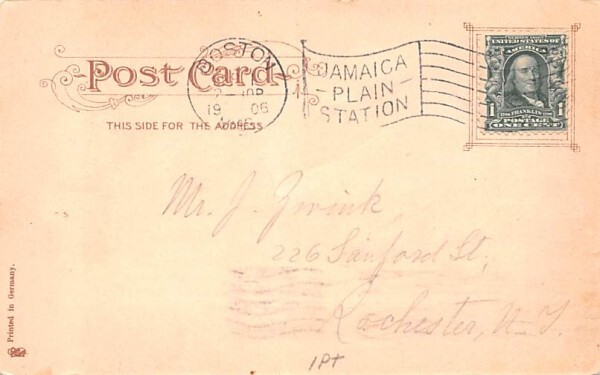 Post Card
THIS SIDE FOR THE ADDRESS
BOSTON
19 06
JAMAICA
PLAIN
STATION
UNITED STATES OF AMERICA
1 FRANKLIN 1
POSTAGE
ONE CENT
Mr. J. Zwink
226 Sanford St,
Rochester, N.Y.
1PT
Printed in Germany.